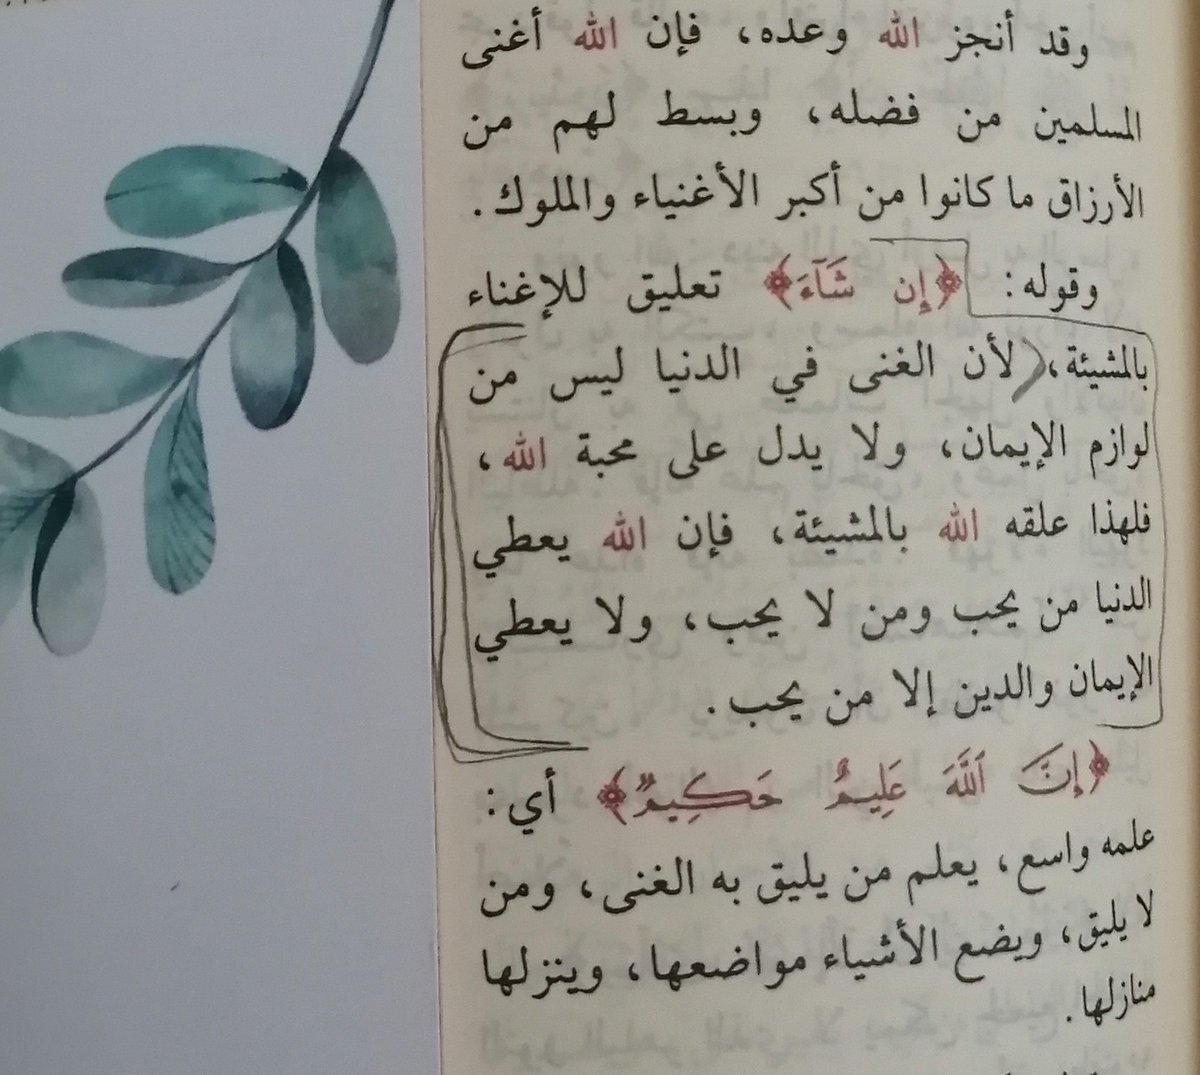 وقد أنجز الله وعده، فإن الله أغنى
المسلمين من فضله، وبسط لهم من
الأرزاق ما كانوا من أكبر الأغنياء والملوك.
وقوله: ﴿إِن شَآءَ﴾ تعليق للإغناء
بالمشيئة، لأن الغنى في الدنيا ليس من
لوازم الإيمان، ولا يدل على محبة الله،
فلهذا علقه الله بالمشيئة، فإن الله يعطي
الدنيا من يحب ومن لا يحب، ولا يعطي
الإيمان والدين إلا من يحب.
﴿إِنَّ ٱللَّهَ عَلِيمٌ حَكِيمٌ﴾ أي:
علمه واسع، يعلم من يليق به الغنى، ومن
لا يليق، ويضع الأشياء مواضعها، وينزلها
منازلها.